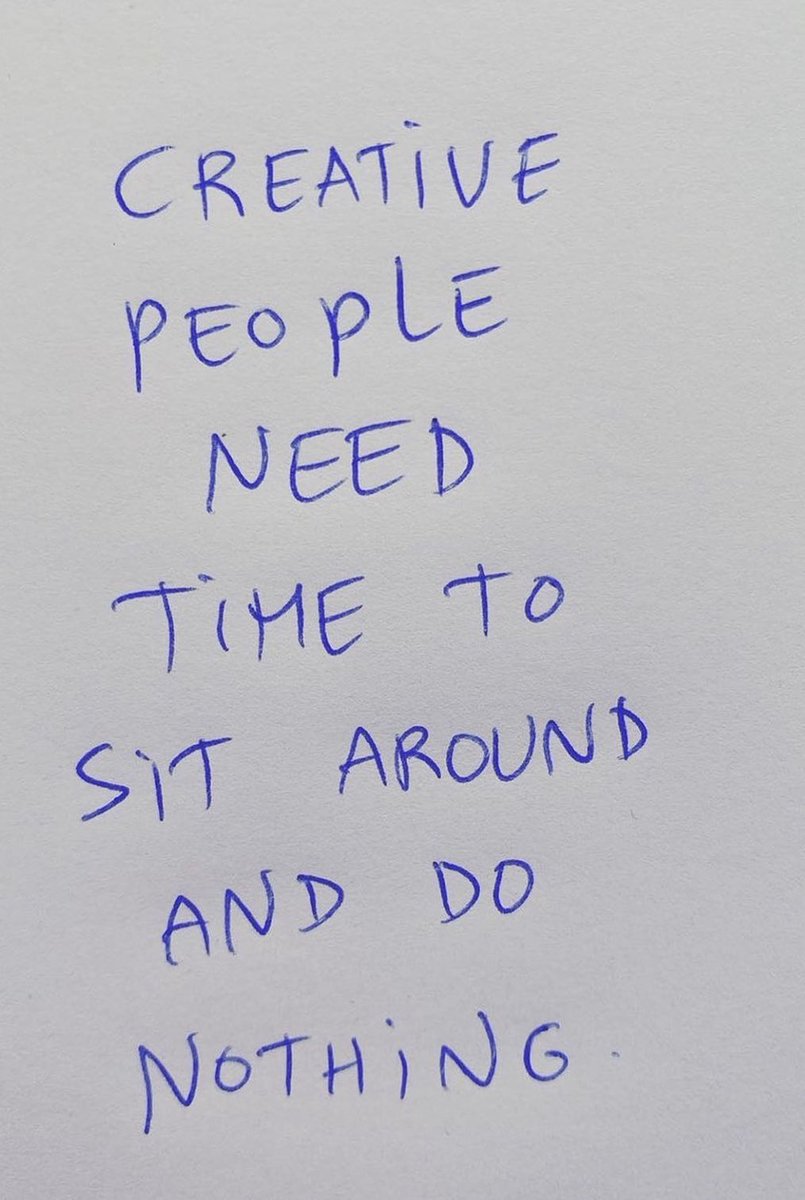 CREATiVE
PEOPLE
NEED
TiME TO
SiT AROUND
AND DO
NOTHiNG.